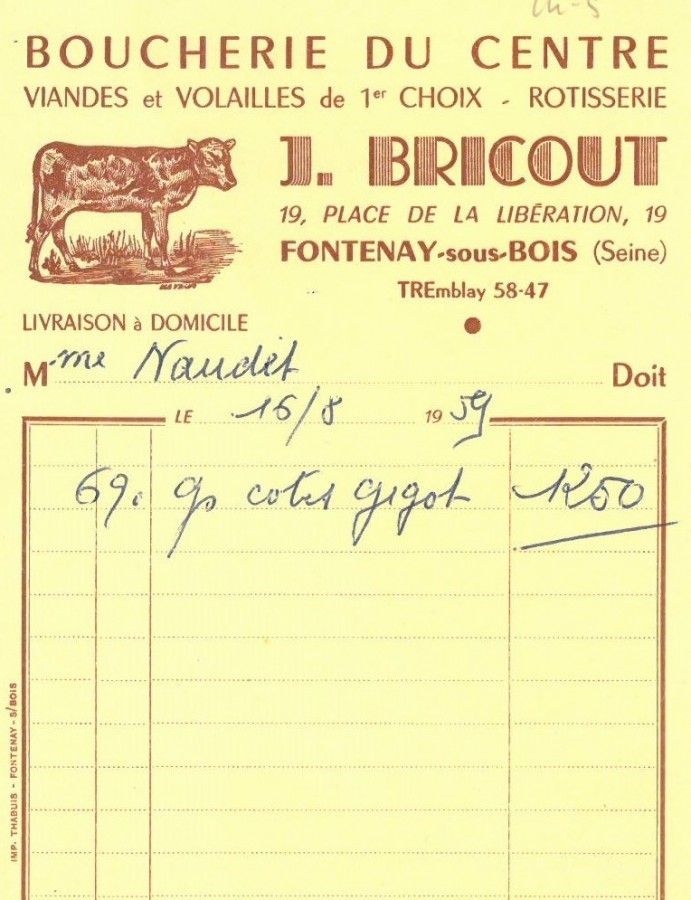 BOUCHERIE DU CENTRE
VIANDES et VOLAILLES de 1er CHOIX - ROTISSERIE
J. BRICOUT
19, PLACE DE LA LIBÉRATION, 19
FONTENAY-sous-BOIS (Seine)
TREmblay 58-47
LIVRAISON à DOMICILE
Mme Naudet Doit
LE 16/8 1959
690 gs cotes gigot 1250
IMP. THABUIS - FONTENAY - S/BOIS